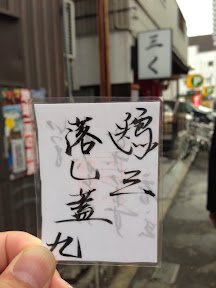 三く
三
落し蓋 九